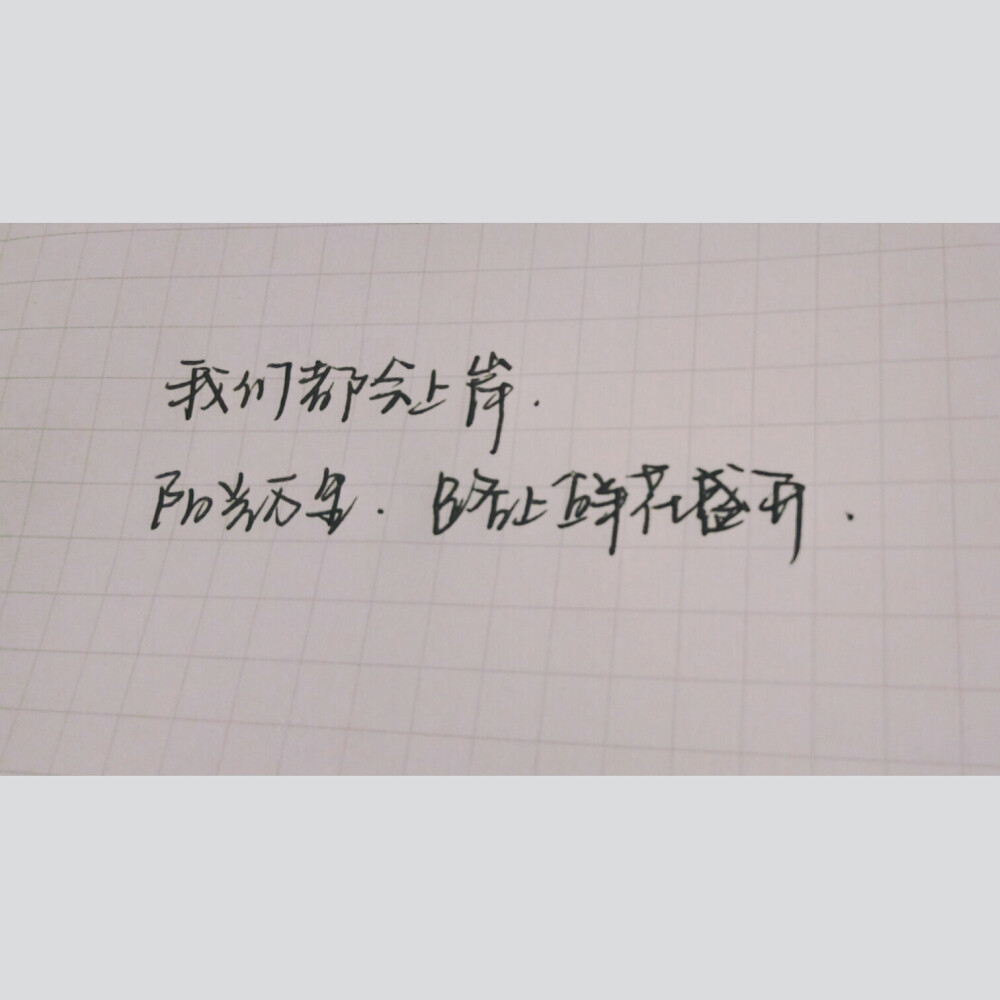 我们都会上岸.
阳光万里. 路上鲜花盛开.